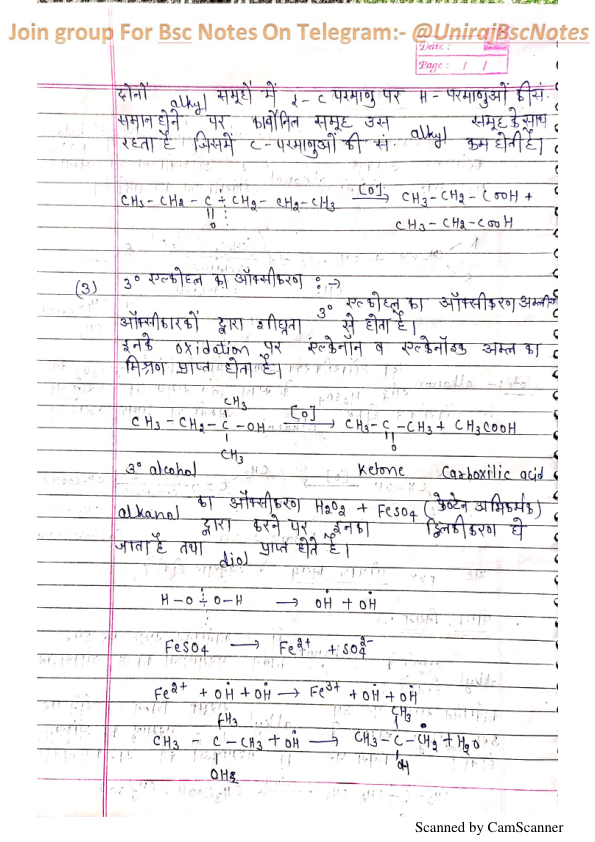 Join group For Bsc Notes On Telegram:- @UnirajBscNotes
Date :
Page : / /
दोनों alkyl समूहों में α-C परमाणु पर H-परमाणुओं की सं.
समान होने पर कार्बोनिल समूह उस alkyl समूह के साथ
रहता है जिसमें C-परमाणुओं की सं. कम होती है।
CH3-CH2-C÷CH2-CH2-CH3 [O]→ CH3-CH2-COOH +
O
CH3-CH2-COOH
(3) 3° एल्कोहल का ऑक्सीकरण :→
3° एल्कोहल का ऑक्सीकरण अम्लीय
ऑक्सीकारकों द्वारा शीघ्रता से होता है।
इनके oxidation पर एल्केनॉन व एल्केनॉइक अम्ल का
मिश्रण प्राप्त होता है।
CH3
CH3-CH2-C-OH [O]→ CH3-C-CH3 + CH3COOH
CH3 O
3° alcohol Ketone Carboxilic acid
alkanol का ऑक्सीकरण H2O2 + FeSO4 (फेन्टेन अभिकर्मक)
द्वारा करने पर इनका द्विलकीकरण हो
जाता है तथा diol प्राप्त होते है।
H-O÷O-H → OH + OH
FeSO4 → Fe2+ + SO4 2-
Fe2+ + OH + OH → Fe3+ + OH + OH
CH3 CH3
CH3-C-CH3 + OH → CH3-C-CH2 + H2O
OH
Scanned by CamScanner